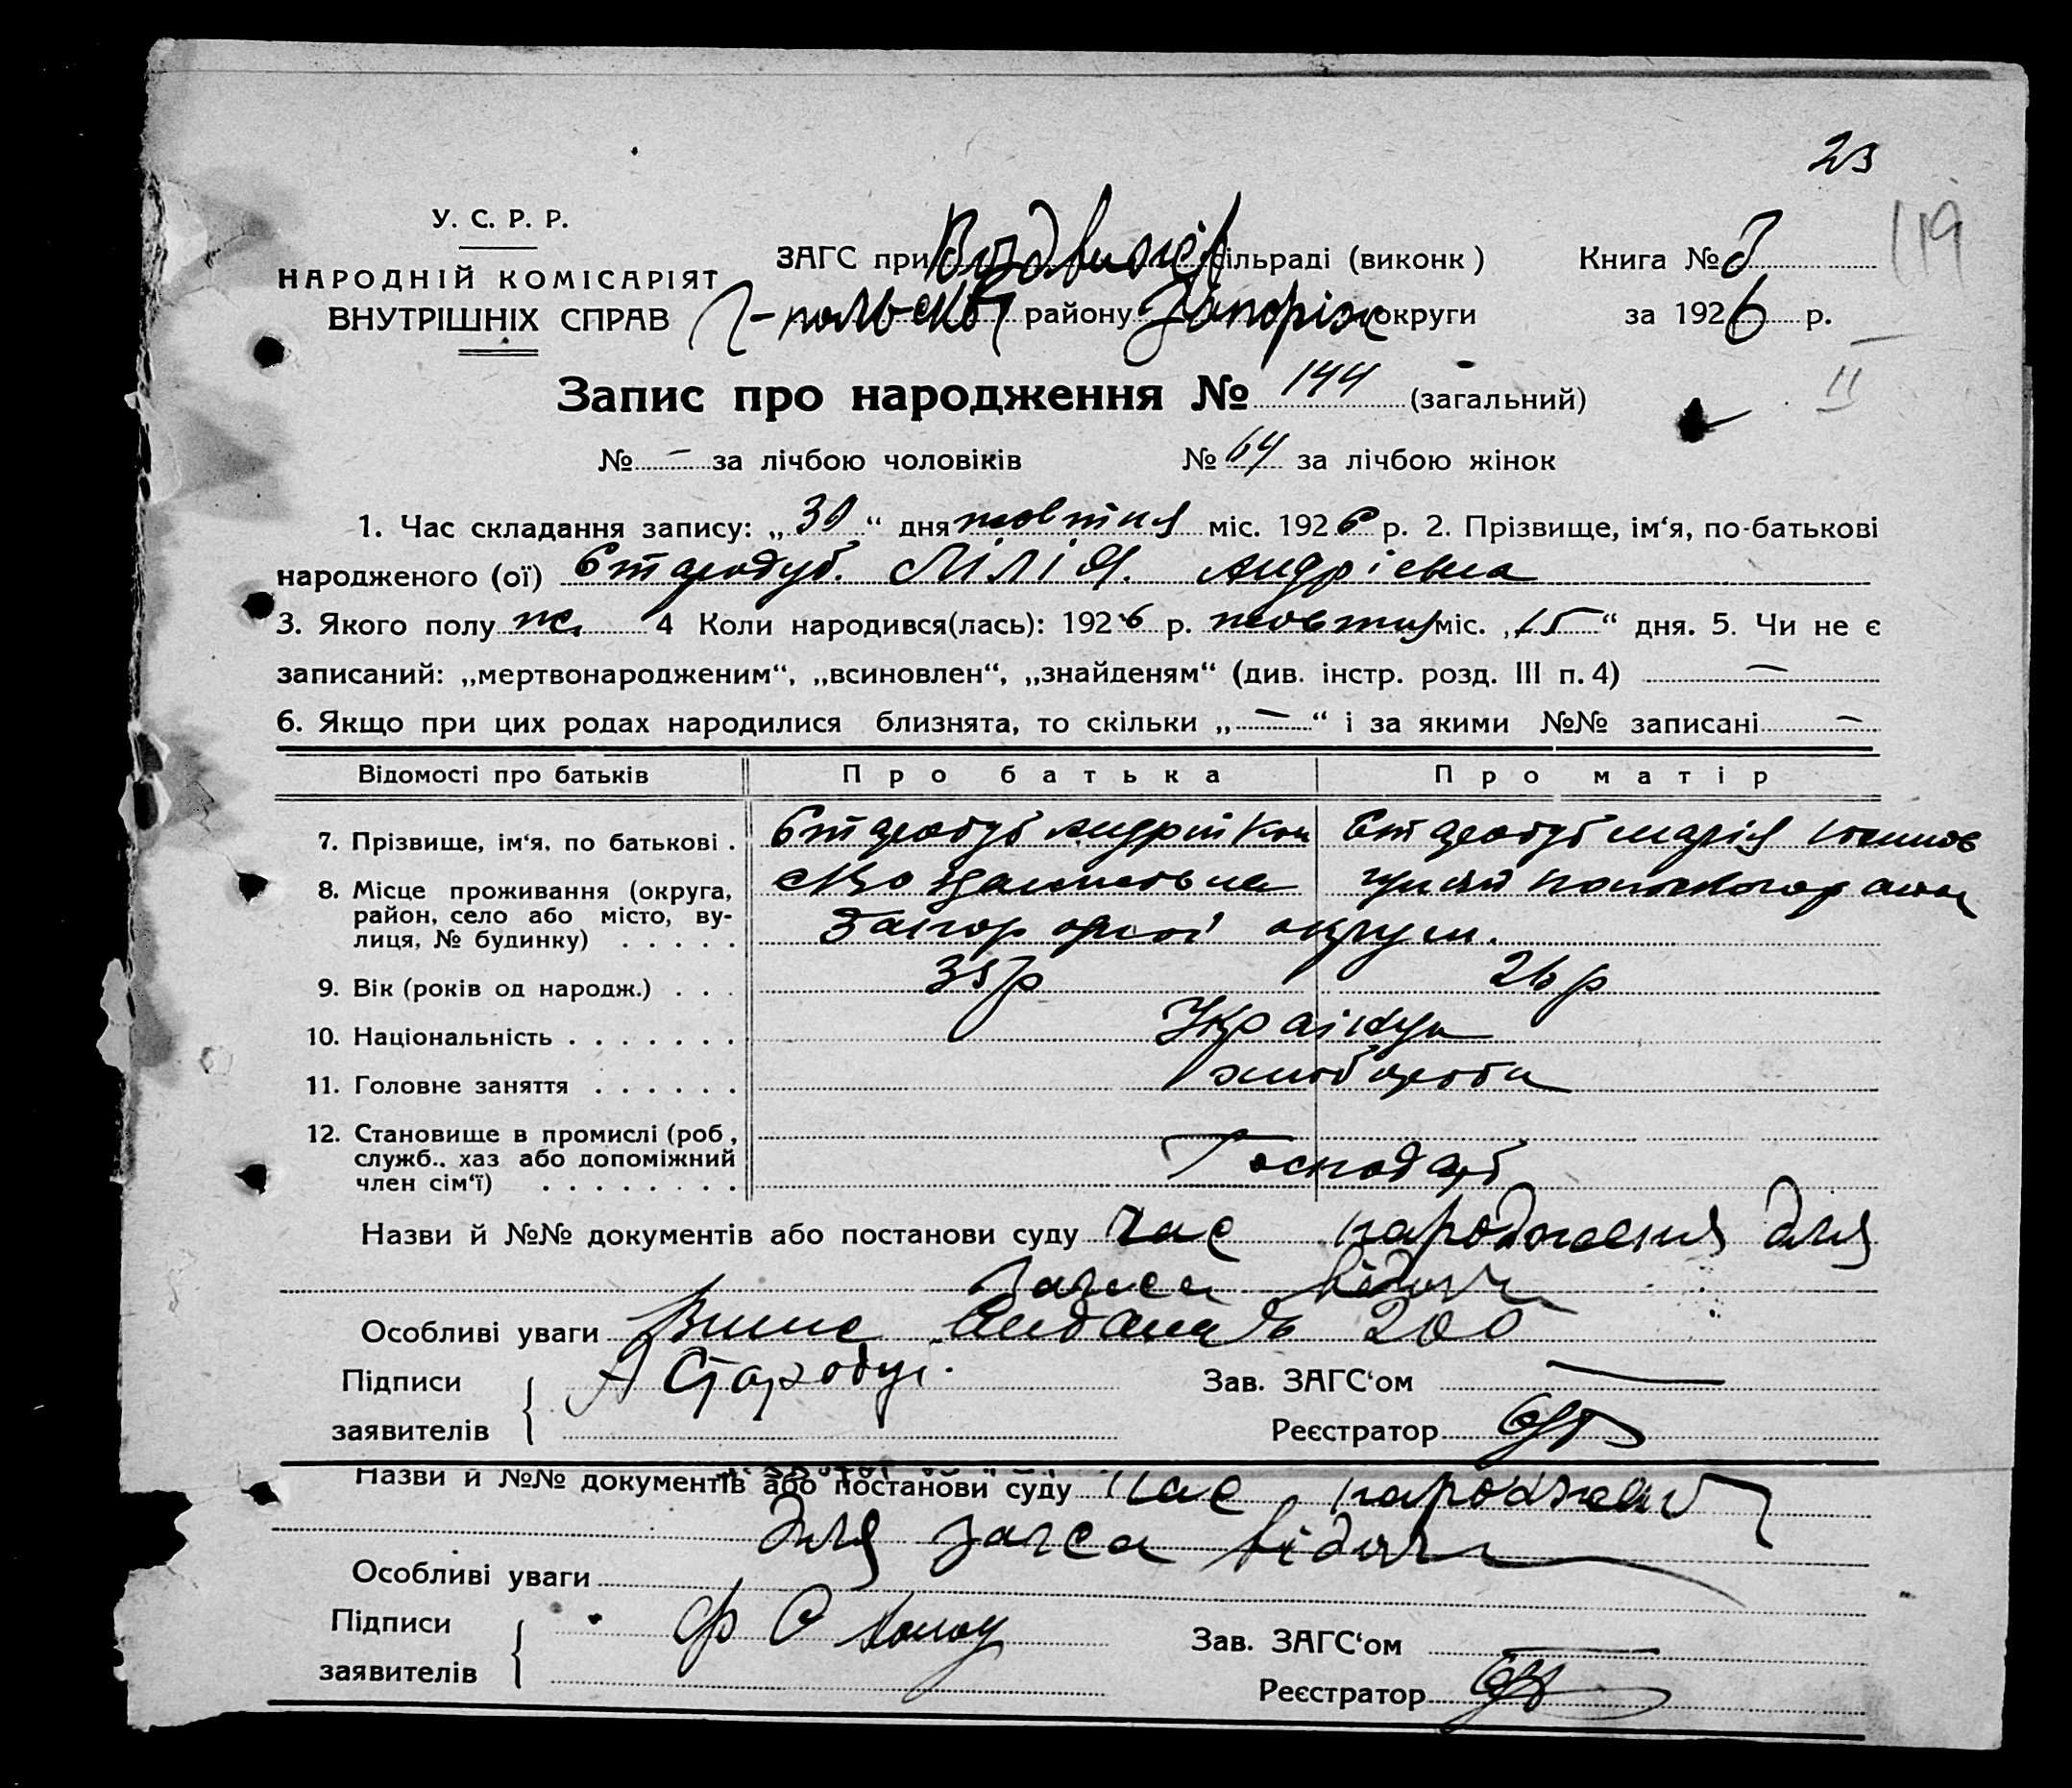 23
119
У. С. Р. Р.
НАРОДНІЙ КОМІСАРІЯТ
ВНУТРІШНІХ СПРАВ
ЗАГС при Воздвижів сільраді (виконк )
Г-польськ району Запоріж округи
Книга №
за 1926 р.
II
Запис про народження № 144 (загальний)
№ – за лічбою чоловіків № 64 за лічбою жінок
1. Час складання запису: „30“ дня жовтня міс. 1926 р. 2. Прізвище, ім‘я, по-батькові
народженого (ої) Стародуб. Лілія. Андрієвна
3. Якого полу ж. 4 Коли народився(лась): 1926 р. жовтня міс. „15“ дня. 5. Чи не є
записаний: „мертвонародженим“, „всиновлен“, „знайденям“ (див. інстр. розд. III п. 4) —
6. Якщо при цих родах народилися близнята, то скільки „—“ і за якими №№ записані —
Відомості про батьків Про батька Про матір
7. Прізвище, ім‘я, по батькові . Стародуб Андрій Стародуб Марія
8. Місце проживання (округа,
район, село або місто, ву-
лиця, № будинку) . . . . . округи.
9. Вік (років од народж.) . . . 35 р 26 р
10. Національність . . . . . . . Українци
11. Головне заняття . . . . . . хлібороби
12. Становище в промислі (роб ,
служб.. хаз або допоміжний
член сім‘ї) . . . . . . . . Господарі
Назви й №№ документів або постанови суду час народження для
загса
Особливі уваги 200
Підписи
заявителів
А Стародуб.
Зав. ЗАГС‘ом —
Реєстратор
Назви й №№ документів або постанови суду час народження
для загса
Особливі уваги
Підписи
заявителів
Зав. ЗАГС‘ом —
Реєстратор